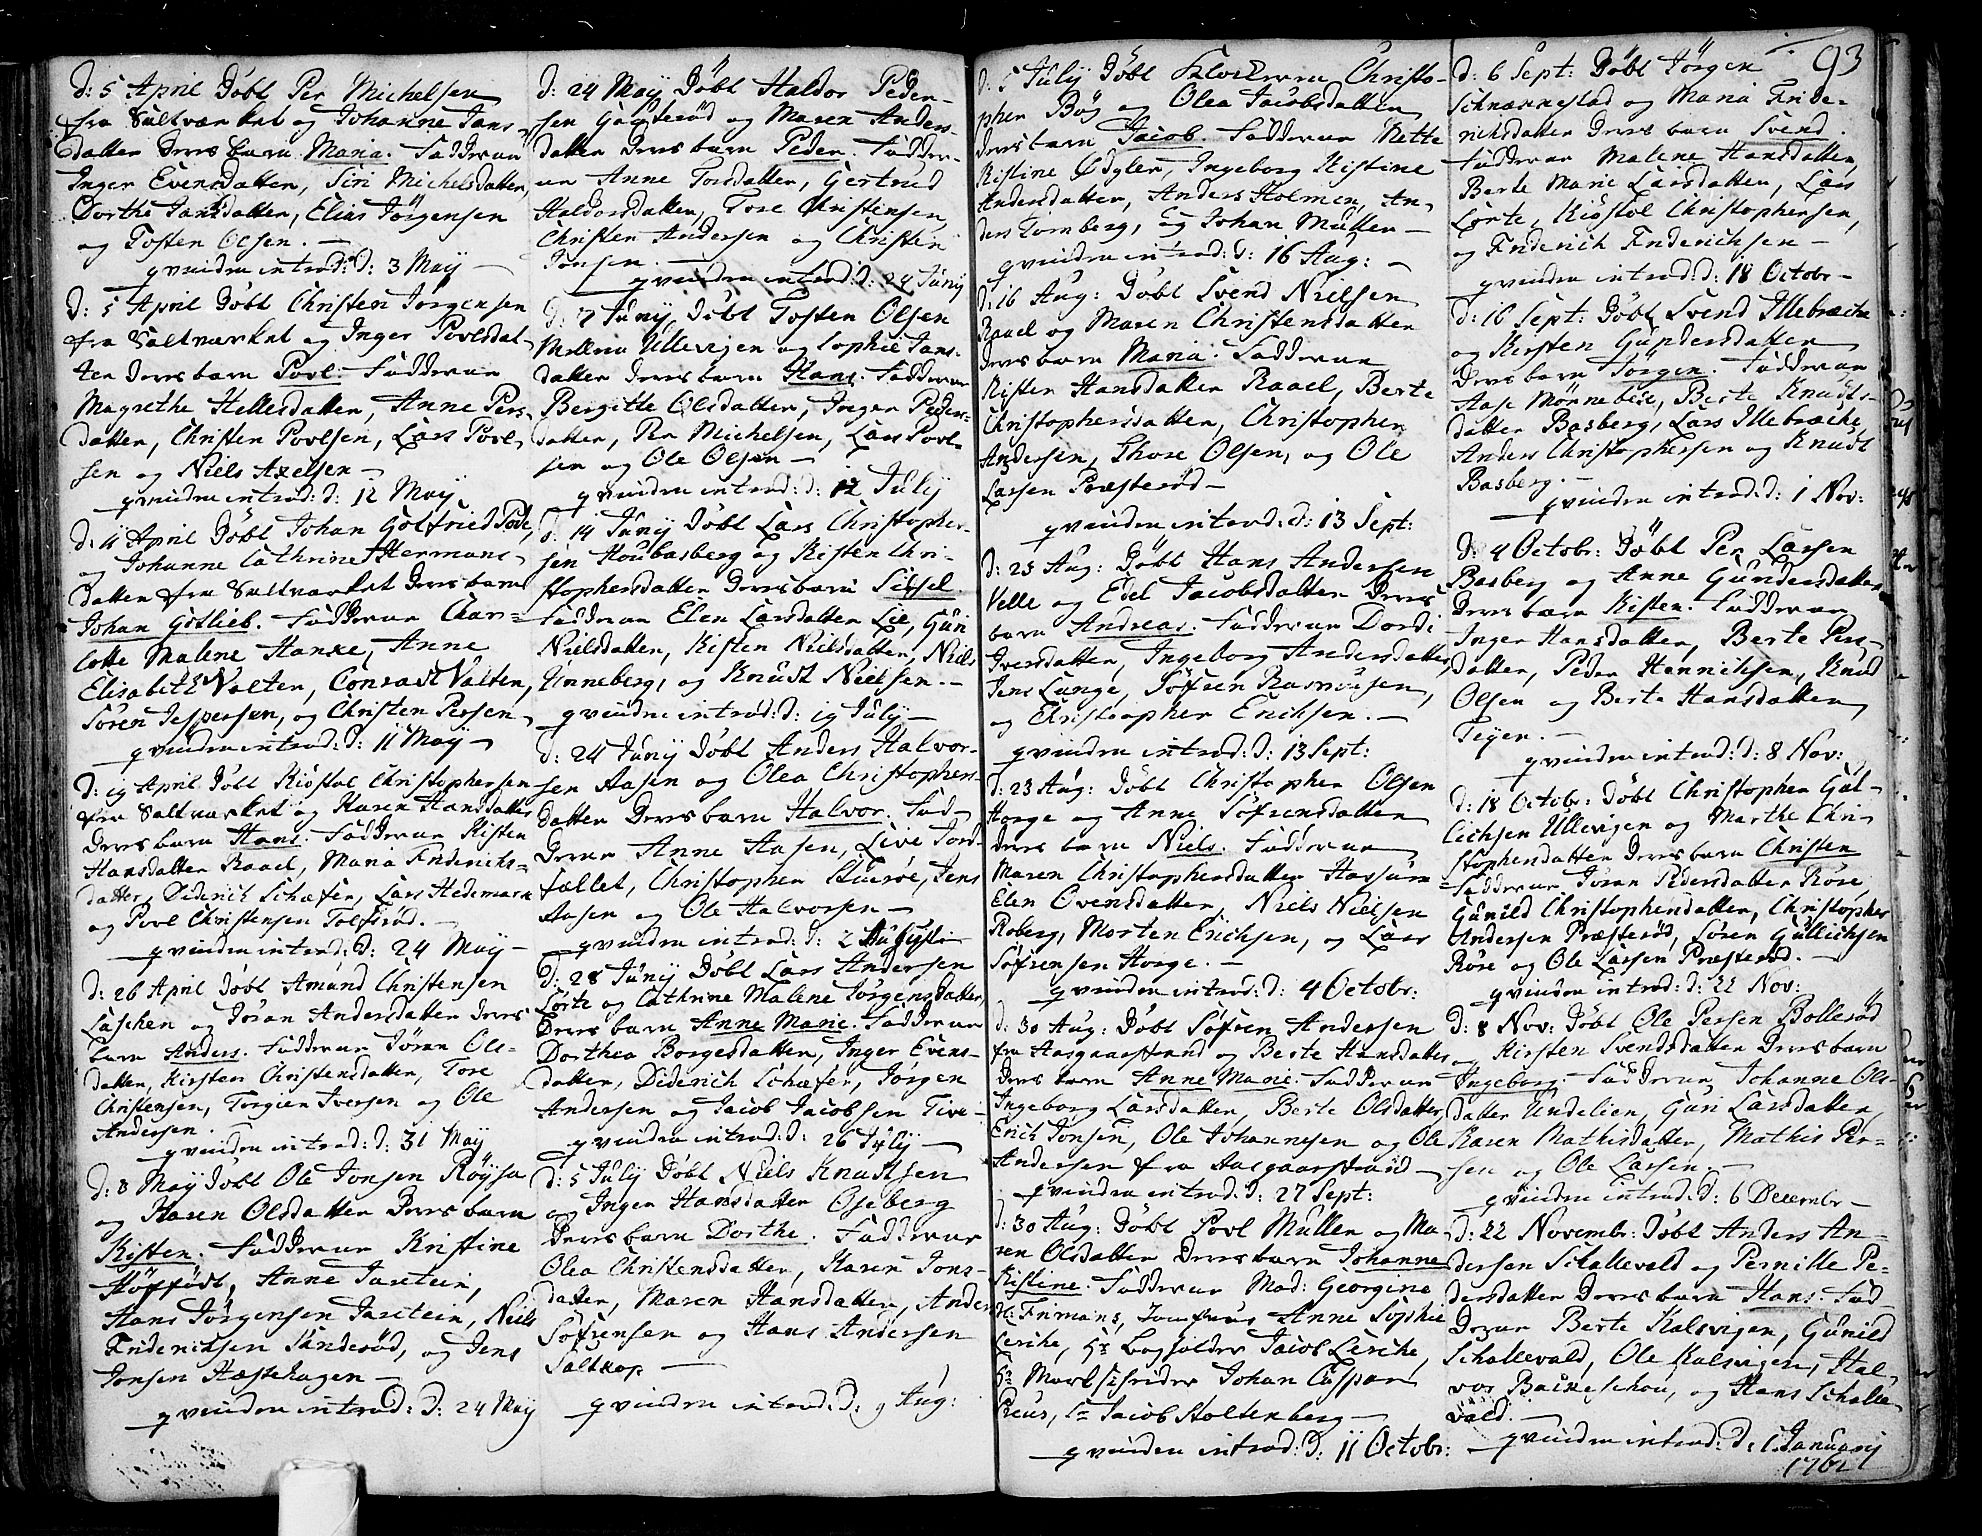 d: 5 April Döbt Per Michelsen
fra Saltværket og Johanne Jans-
datter deres barn Maria. Fadderne
Inger Evensdatter, Siri Michelsdatter,
Dorthe Jansdatter, Elias Jörgensen
og Tosten Olsen. —
qvinden introd: d: 3 May —
d: 5 April Döbt Christen Jörgensen
fra Saltværket og Inger Povelsdat-
ter deres barn Povl. Fadderne
Magrethe Hellesdatter, Anne Pers-
datter, Christen Povlsen, Lars Povl-
sen og Niels Axelsen —
qvinden introd: d: 12 May.
d: 11 April Döbt Johan Gotfried Pode,
og Johanne Cathrine Hermans-
datter fra Saltværket deres barn
Johan Gotlieb. Fadderne Char-
lotte Malene Hanke, Anne
Elisabeth Valten, Conradt Valten,
Sören Jespersen, og Christen Persen
qvinden introd: d: 11 May —
d: 19 April Döbt Kiöstol Christophersen
fra Saltværket og Karen Hansdatter
deres barn Hans. Fadderne Kisten
Hansdatter Raael, Maria Friderichs-
datter, Diderich Schæfer, Lars Hedemark
og Povl Christensen Tolfsröd. —
qvinden introd: d: 24 May —
d: 26 April Döbt Amund Christensen
Laschen og Jöran Andersdatter deres
barn Anders. Fadderne Jöran Ols-
datter, Kirsten Christensdatter, Tore
Christensen, Torgier Iversen og Ole
Andersen. —
qvinden introd: d: 31 May
d: 8 May Döbt Ole Jonsen Röysa
og Karen Olsdatter deres barn
Kisten. Fadderne Kristine
Höffödt, Anne Jaretein,
Hans Jörgensen Jaretein, Niels
Friderichsen Sandesöd, og Jens
Jonsen Hæstehagen —
qvinden introd: d: 24 May
d: 24 May Döbt Haldor Peder-
sen Gaasteröd og Maren Anders-
datter deres barn Peder. Fadder-
ne Anne Torsdatter, Gertrud
Haldorsdatter, Tore Christensen,
Christen Andersen og Christen
Jonsen. —
qvinden introd: d: 24 Juny
d: 7 Juny Döbt Tosten Olsen
Mellem Ullevigen og Sophie Jans-
datter deres barn Hans. Fadderne
Bergitte Olsdatter, Inger Peders-
datter, Per Michelsen, Lars Povl-
sen og Ole Olsen —
qvinden introd: d: 12 July
d: 14 Juny Döbt Lars Christopher-
sen Houbasberg og Kisten Chri-
stophersdatter deres barn Sissel
Fadderne Elen Larsdatter Lie, Guri
Nielsdatter, Kisten Nielsdatter, Niels
Unneberg, og Knudt Nielsen. —
qvinden introd: d: 19 July —
d: 24 Juny Döbt Anders Halvor-
sen Aasen og Olea Christophers-
datter deres barn Halvor. Fad-
derne Anne Aasen, Live Jord-
fallet, Christopher Stueröe, Jens
Aasen og Ole Halvorsen —
qvinden introd: d: 2 Augusti —
d: 28 Juny Döbt Lars Andersen
Lörte og Cathrine Malene Jörgensdatter,
deres barn Anne Marie. Fadderne
Dorthea Borgesdatter, Inger Evens-
datter, Diderich Schæfer, Jörgen
Andersen og Jacob Jacobsen Tive —
qvinden introd: d: 26 July —
d: 5 July Döbt Niels Knudtsen
og Inger Hansdatter Oseberg
deres barn Dorthe. Fadderne
Olea Christensdatter, Karen Jons-
datter, Maren Hansdatter, Anders
Söfrensen og Hans Andersen
Saltkop —
qvinden introd: d: 9 Aug:
93
d: 5 July Döbt Klockeren Christo-
pher Böy og Olea Jacobsdatter
deres barn Jacob. Fadderne Mette
Kistine Ödgler, Ingeborg Kistine
Andersdatter, Anders Holmen, An-
ders Tornberg, og Johan Müller —
qvinden introd: d: 16 Aug: —
d: 16 Aug: Döbt Svend Nielsen
Raael og Maren Christensdatter
deres barn Maria. Fadderne
Kisten Hansdatter Raael, Berte
Christophersdatter, Christopher
Andersen, Thore Olsen, og Ole
Larsen Præsteröd —
qvinden introd: d: 13 Sept:
d: 23 Aug: Döbt Hans Andersen
Velle og Edel Jacobsdatter deres
barn Andreas. Fadderne Dordi
Iversdatter, Ingeborg Andersdatter,
Jens Lunge, Söfren Rasmusen,
og Christopher Erichsen. —
qvinden introd: d: 13 Sept:
d: 23 Aug: Döbt Christopher Olsen
Horge og Anne Söfrensdatter
deres barn Niels. Fadderne
Maren Christophersdatter Hassum
Elen Ovensdatter, Niels Nielsen
Roberg, Morten Erichsen, og Lars
Söfrensen Horge. —
qvinden introd: d: 4 Octobr:
d: 30 Aug: Döbt Söfren Andersen
fra Aasgaarstrand og Berte Hansdatter
deres barn Anne Marie. Fadderne
Ingeborg Larsdatter, Berte Olsdatter,
Erich Jonsen, Ole Johannesen og Ole
Andersen fra Aasgaarstrand —
qvinden introd: d: 27 Sept:
d: 30 Aug: Döbt Povl Müller og Ma-
ren Olsdatter deres barn Johanne
Kistine. Fadderne Mad: Georgine
M: Frimans, Jomfrue Anne Sophie
Lerche, Hr Bogholder Jacob Lerche,
Hr Markscheider Johan Casparus
Preus, Sr Jacob Stoltenberg —
qvinden introd: d: 11 Octobr:
d: 6 Sept: Döbt Jörgen
Schnækkestad og Maria Fride-
richsdatter deres barn Svend.
Fadderne Malene Hansdatter,
Berte Marie Larsdatter, Lars
Lörte, Kiöstol Christophersen,
og Friderich Friderichsen —
qvinden introd: d: 18 Octobr —
d: 16 Sept: Döbt Svend Illebræche
og Kirsten Gundersdatter
deres barn Jörgen. Fadderne
Aase Mönnebere, Berte Knudts-
datter Basberg, Lars Illebræche,
Anders Christophersen og Knudt
Basberg. —
qvinden introd: d: 1 Nov:
d: 4 Octobr: Döbt Per Larsen
Basberg og Anne Gundersdatter
deres barn Kisten. Fadderne
Inger Hansdatter, Berte Pers-
datter, Peder Hennichsen, Knud
Olsen og Berte Hansdatter
Teyen. —
qvinden introd: d: 8 Nov:
d: 18 Octobr: Döbt Christopher Gul-
lichsen Ullevigen og Marthe Chri-
stophersdatter deres barn Christen
Fadderne Jöran Pedersdatter Röre,
Gunild Christophersdatter, Christopher
Andersen Præsteröd, Sören Gullichsen
Röre og Ole Larsen Præsteröd. —
qvinden introd: d: 22 Nov:
d: 8 Nov: Döbt Ole Persen Bolleröd
og Kirsten Svendsdatter deres barn
Ingeborg. Fadderne Johanne Ols-
datter Undelien, Guri Larsdatter,
Karen Mathisdatter, Mathis Per-
sen og Ole Larsen. —
qvinden introd: d: 6 Decembr —
d: 22 Novembr: Döbt Anders An-
dersen Schallevald og Pernille Pe-
dersdatter deres barn Hans. Fad
derne Berte Kalsvigen, Gunild
Schallevald, Ole Kalsvigen, Hal-
vor Backeschou, og Hans Schalle-
vald. —
qvinden introd: d: 1 January
1762